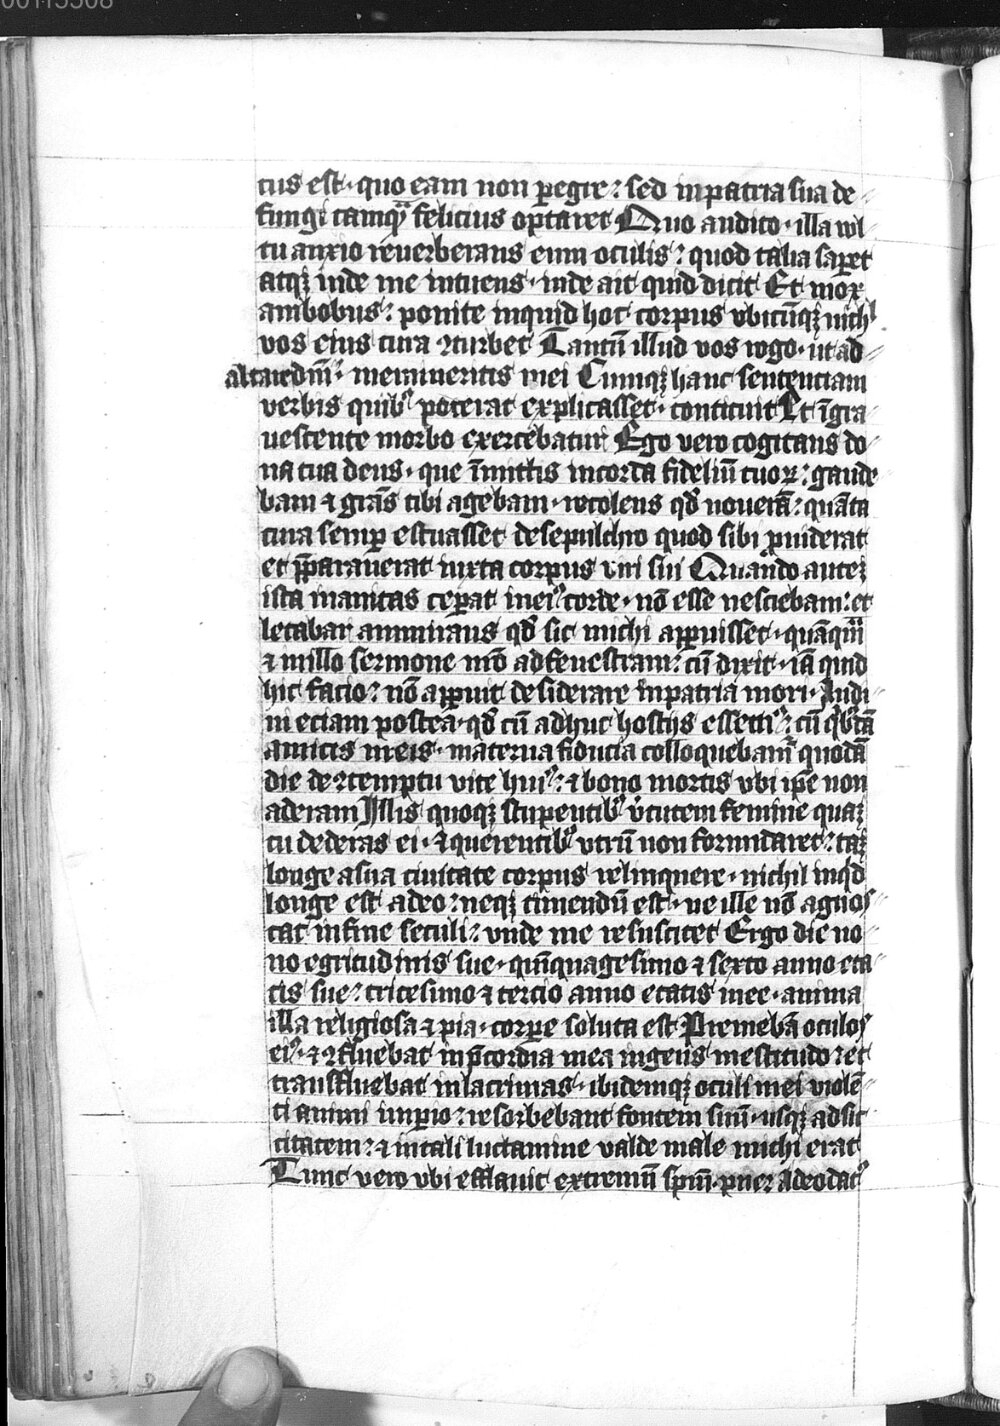 00115508
tus est · quo eam non pegre : sed in patria sua de
fungi tamqᷓ felicius optaret Quo audito · illa vul
tu anxio reuerberans eum oculis : quod talia saperet
atqꝫ inde me intuens · inde ait quid dicit Et mox
ambobus : ponite inquid hoc corpus vbicūqꝫ nichl
vos eius cura ꝯturbet Tantū illud vos rogo · ut ad
altare dn̄i · memineritis mei Cumqꝫ hanc sententiam
verbis quibꝰ poterat explicasset · conticuit Et īgra
uescente morbo exercebatur Ego vero cogitans do
na tua deus · que īmittis in corda fideliū tuoꝝ : gaude
bam ⁊ grās tibi agebam · recolens qd̄ noueram : quāta
cura semꝑ estuasset de sepulchro quod sibi ꝓuiderat
et p̄parauerat iuxta corpus viri sui Quando autez
ista inanitas ceperat in eiꝰ corde · nō esse nesciebam : et
letabar ammirans qd̄ sic michi apparuisset · quāqm̄
⁊ in illo sermone nr̄o ad fenestram : cū dixit · iā quid
hic facio : nō apparuit desiderare in patria mori · Audi
ui etiam postea · qd̄ cū adhuc hostiis essemꝰ : cū qbusdā
amicis meis · materna fiducia colloquebatur quodā
die de ꝯtemptu vite huiꝰ : ⁊ bono mortis vbi ip̄e non
aderam Illis quoqꝫ stupentibꝰ v̄tutem femine quaꝫ
tu dederas ei · ⁊ querentibꝰ vtrū non formidaret : taꝫ
longe a sua ciuitate corpus relinquere · nichil inqd
longe est a deo : neqꝫ timendū est · ne ille nō agnos
cat in fine seculi : vnde me resuscitet Ergo die no
no egritudinis sue · quīquagesimo ⁊ sexto anno eta
tis sue : tricesimo ⁊ tercio anno etatis mee · anima
illa religiosa ⁊ pia · corpore soluta est Premebā oculos
eiꝰ · ⁊ ꝯfluebat in p̄cordia mea ingens mestitudo : et
transfluebat in lacrimas · ibidemqꝫ oculi mei violē
ti animi imperio : resorbebant fontem suū · usqꝫ ad sic
citatem : ⁊ in tali luctamine valde male michi erat
Tunc vero vbi efflauit extremū spm̄ · puer Adeodatꝰ